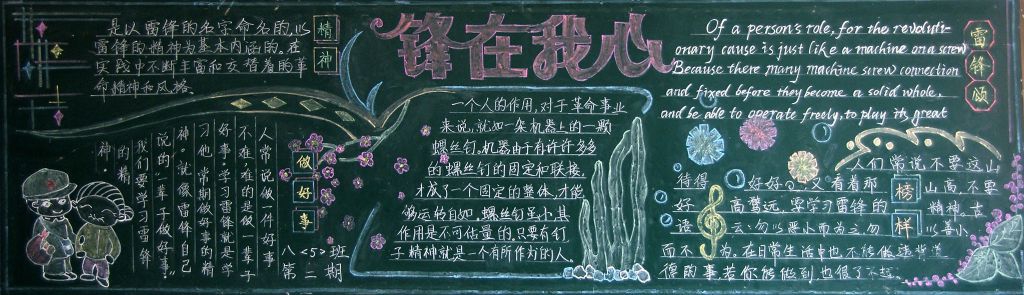 是以雷锋的名字命名的,以
雷锋的精神为基本内涵的,在
实践中不断丰富和发替着的革
命精神和风格。
精
神
锋在我心
Of a person's role, for the revoluti-
onary cause is just like a machine on a screw
Because there many machine screw connection
and fixed before they become a solid whole,
and be able to operate freely, to play its great
雷
锋
颂
一个人的作用,对于革命事业
来说,就如一架机器上的一颗
螺丝钉。机器由于有许许多多
的螺丝钉的固定和联接,
才成了一个固定的整体,才能
够运的自如,螺丝钉虽小,其
作用是不可估量的,只要有钉
子精神就是一个有所作为的人。
做
好
事
人常说做一件好事
不难,难的是做一辈子
好事。学习雷锋就是学
习他,常期做好事的精
神。就像雷锋自己
说的:“一辈子做好事”
我们要学习雷锋
的精
神。
八<5>班
第二期
人们常说不要这山
待得 好好 又看着那 山高,不要
好 高骛远,要学习雷锋的 精神。古
语 云:勿以恶小而为之,勿 以善小
而不 为。在日常生活中也不能做违背道
德的事,若你能做到也很了不起。
榜
样